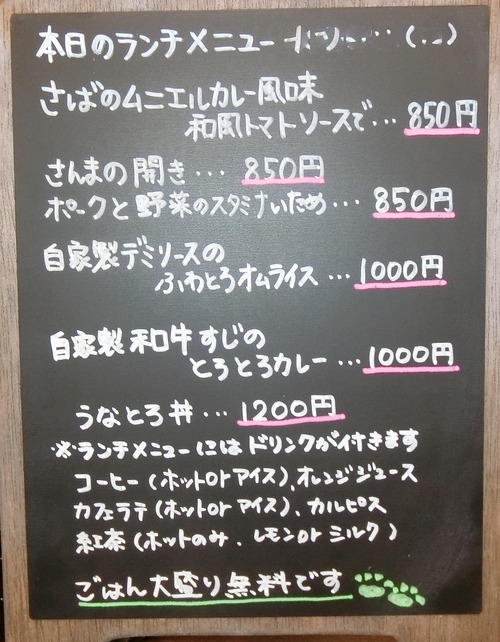 本日のランチメニュー
さばのムニエルカレー風味
和風トマトソースで… 850円
さんまの開き… 850円
ポークと野菜のスタミナいため… 850円
自家製デミソースの
ふわとろオムライス …1000円
自家製和牛すじの
とろとろカレー …1000円
うなとろ丼… 1200円
※ランチメニューにはドリンクが付きます
コーヒー(ホットorアイス)、オレンジジュース
カフェラテ(ホットorアイス)、カルピス
紅茶(ホットのみ、レモンorミルク)
ごはん大盛り無料です